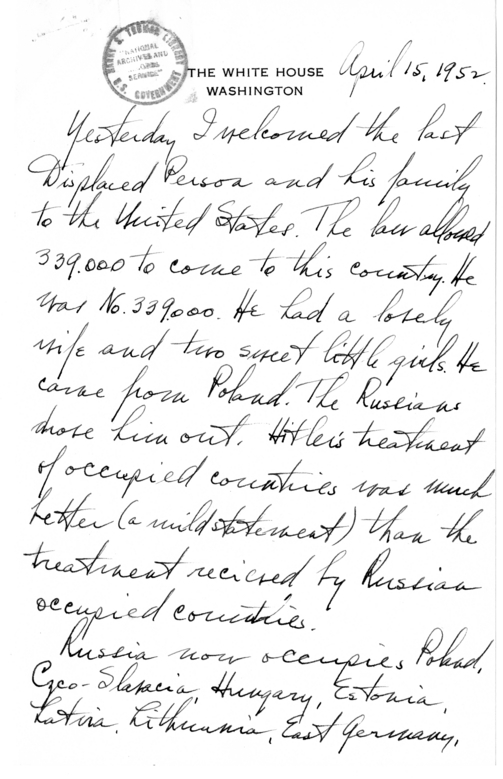 HARRY S. TRUMAN LIBRARY
NATIONAL
ARCHIVES AND
RECORDS
SERVICE
U.S. GOVERNMENT
THE WHITE HOUSE
WASHINGTON
April 15, 1952.
Yesterday I welcomed the last
Displaced Person and his family
to the United States. The law allowed
339.000 to come to this country. He
was No. 339,000. He had a lovely
wife and two sweet little girls. He
came from Poland. The Russians
drove him out. Hitler's treatment
of occupied countries was much
better (a mild statement) than the
treatment recieved by Russian
occupied countries.
Russia now occupies Poland,
Czco-Slavacia, Hungary, Estonia,
Latvia, Lithuania, East Germany,